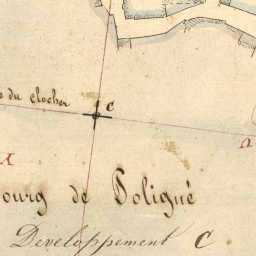 du clocher
C
ourg de Poligné
Developpement C